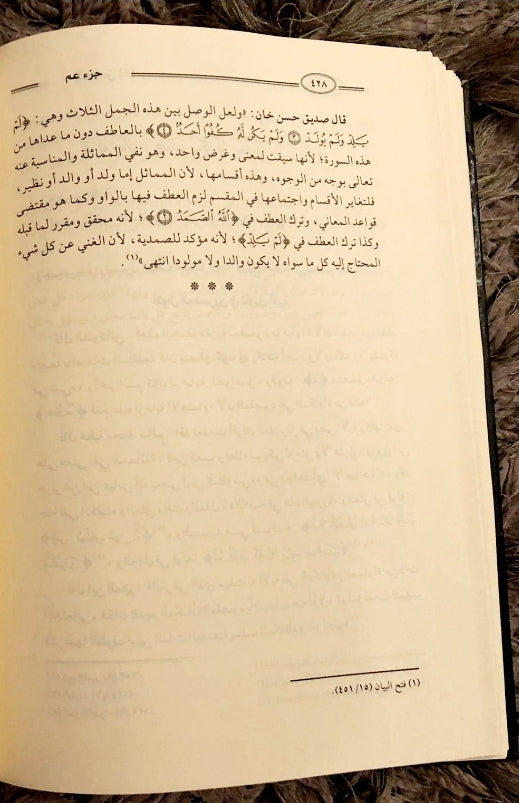 ٤٢٨
جزء عم
قال صديق حسن خان: «ولعل الوصل بين هذه الجمل الثلاث وهي: ﴿لَمْ
يَلِدْ وَلَمْ يُولَدْ ۝٣ وَلَمْ يَكُن لَّهُ كُفُوًا أَحَدٌ ۝٤﴾ بالعاطف دون ما عداها من
هذه السورة؛ لأنها سيقت لمعنى وغرض واحد، وهو نفي المماثلة والمناسبة عنه
تعالى بوجه من الوجوه، وهذه أقسامها، لأن المماثل إما ولد أو والد أو نظير،
فلتغاير الأقسام واجتماعها في المقسم لزم العطف فيها بالواو وكما هو مقتضى
قواعد المعاني، وترك العطف في ﴿اللَّهُ الصَّمَدُ ۝٢﴾؛ لأنه محقق ومقرر لما قبله
وكذا ترك العطف في ﴿لَمْ يَلِدْ﴾؛ لأنه مؤكد للصمدية، لأن الغني عن كل شيء
المحتاج إليه كل ما سواه لا يكون والدا ولا مولودا انتهى»(١).
* * *
(١) فتح البيان (١٥/ ٤٥١).